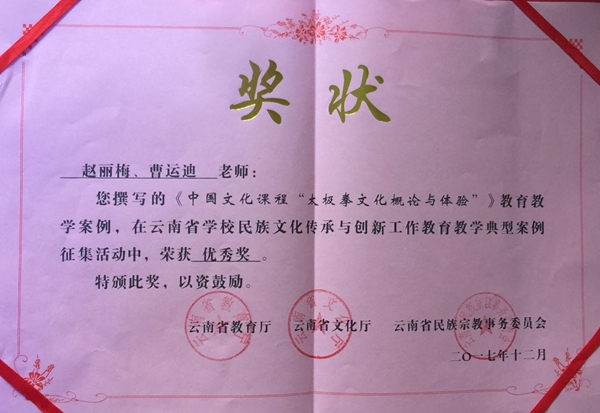 奖状
赵丽梅、曹运迪 老师：
您撰写的《中国文化课程“太极拳文化概论与体验”》教育教
学案例，在云南省学校民族文化传承与创新工作教育教学典型案例
征集活动中，荣获 优秀奖 。
特颁此奖，以资鼓励。
云南省教育厅 云南省文化厅 云南省民族宗教事务委员会
二〇一七年十二月